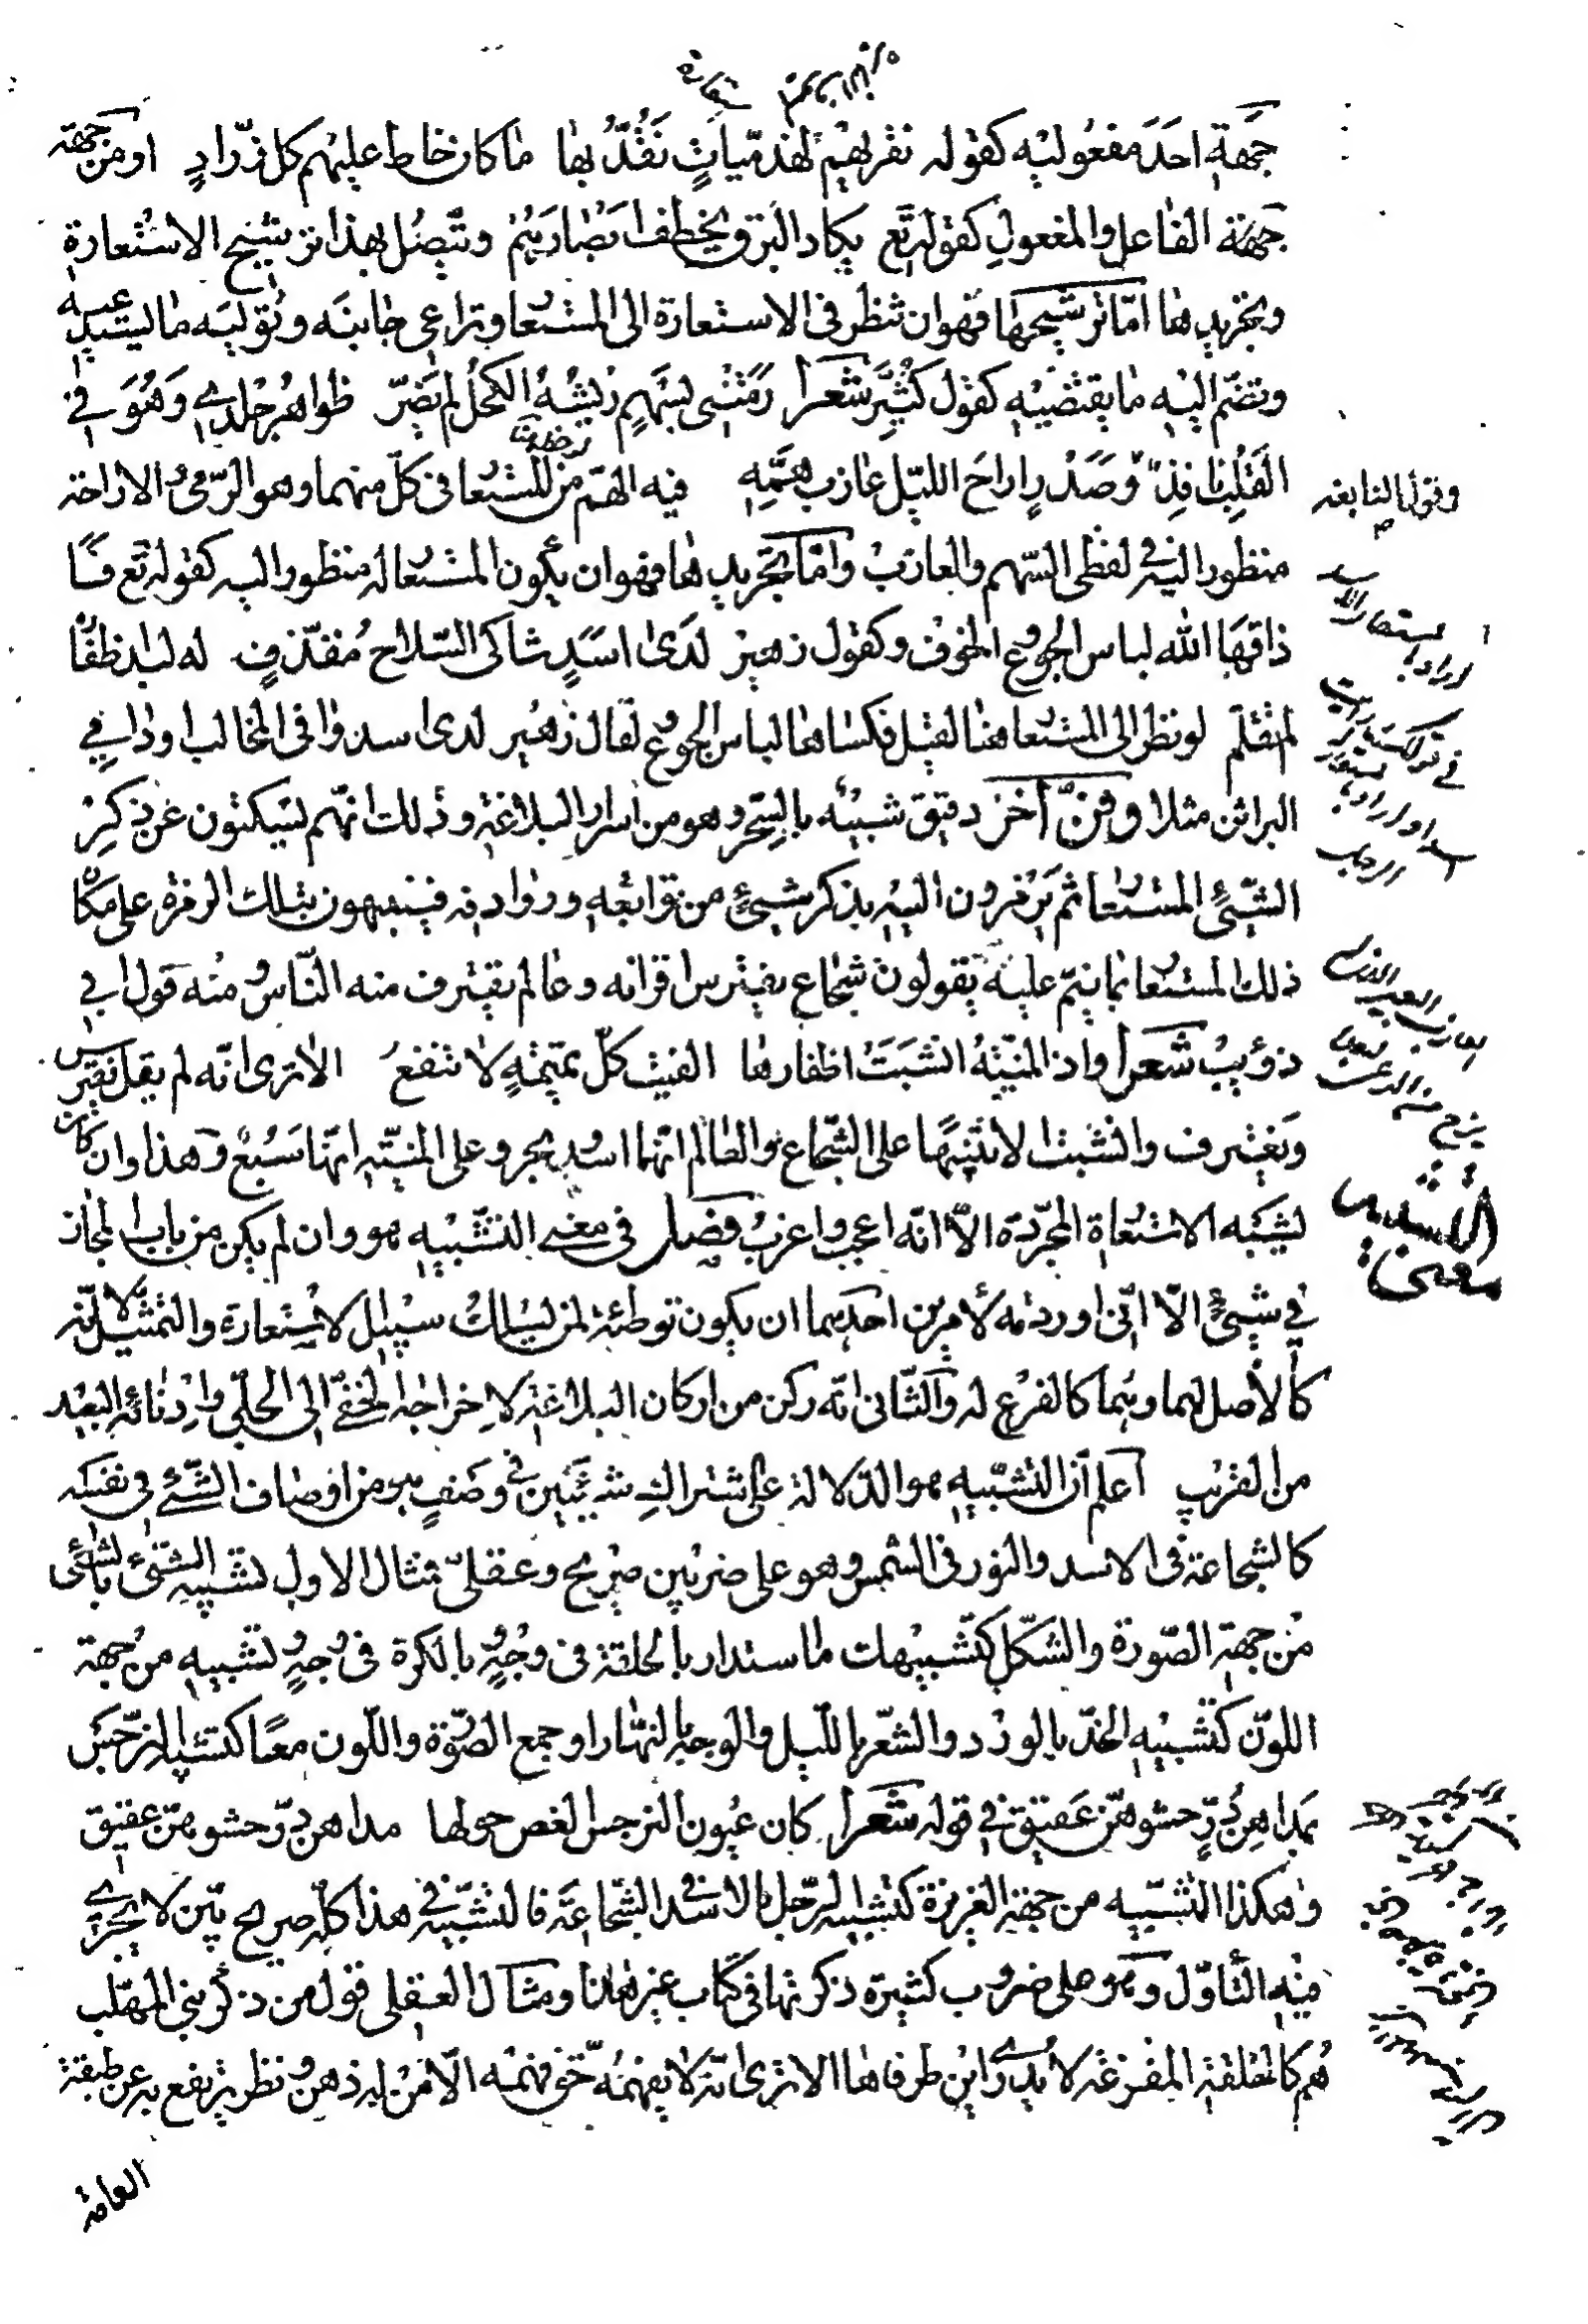 جهة احد مفعوليه كقوله نقريهم لهذميات نقد بها ما كان خاط عليهم كل زراد او من جهة
جهة الفاعل والمفعول كقوله تع يكاد البرق يخطف ابصارهم ويتصل بهذا ترشيح الاستعارة
وتجريدها اما ترشيحها فهو ان تنظر في الاستعارة الى المستعار وتراعى جانبه وتوليه ما يستدعيه
وتضم اليه ما يقتضيه كقول كثير شعرا رمتنى بسهم ريشه الكحل لم يضر ظواهر جلدى وهو في
القلب نافذ وصدر اراح الليل عازب همه فيه الهم من المستعار في كل منهما وهو الرمى والاراحة
وقول النابغه
منظور اليه في لفظى السهم والعازب واما تجريدها فهو ان يكون المستعار له منظور اليه كقوله تع فا
ذاقها الله لباس الجوع والخوف وكقول زهير لدى اسد شاكى السلاح مقذف له لبد اظفا
لم تقلم لو نظر الى المستعار هنا لقيل فكساها لباس الجوع لقال زهير لدى اسد وافى المخالب او دامي
البراثن مثلا وفن آخر دقيق شبيه بالسحر وهو من اسرار البلاغة وذلك انهم يسكتون عن ذكر
الشيئ المستعار ثم يرمزون اليه بذكر شيئ من توابعه وروادفه فينبهون بتلك الرمزة على مكا
ذلك المستعار بما ينم عليه يقولون شجاع يفترس اقرانه وعالم يغترف منه الناس ومنه قول ابي
ذؤيب شعرا واذا المنية انشبت اظفارها الفيت كل تميمة لا تنفع الا ترى انه لم يقل تفترس
ويغترف وانشبت الا تنبيها على الشجاع والعالم انهما اسد وبحر وعلى المنية انها سبع وهذا وان كان
يشبه الاستعارة المجردة الا انه اعجب واغرب فصل في معنى التشبيه هو وان لم يكن من باب المجاز
التشبيه
معنى
في شيئ الا انى اوردته لأمرين احدهما ان يكون توطئة لمن يسلك سبيل الاستعارة والتمثيل لانه
كالأصل لهما وهما كالفرع له والثانى انه ركن من اركان البلاغة لاخراجه الخفى الى الجلى وادنائه البعيد
من القريب اعلم ان التشبيه هو الدلالة على اشتراك شيئين في وصف هو من اوصاف الشئ في نفسه
كالشجاعة في الاسد والنور في الشمس وهو على ضربين صريح وعقلى مثال الاول تشبيه الشئ بالشئ
من جهة الصورة والشكل كتشبيهات ما استدار بالحلقة في وجه وبالكرة في وجه وتشبيه من جهة
اللون كتشبيه الخد بالورد والشعر بالليل والوجه بالنهار او جمع الصورة واللون معا كتشبيه النرجس
بمداهن در حشوهن عقيق في قوله شعرا كان عيون النرجس الغض حولها مداهن در حشوهن عقيق
وهكذا التشبيه من جهة الغريزة كتشبيه الرجل بالاسد في الشجاعة فالتشبيه في هذا كله صريح بين لا يجرى
فيه التأول وهو على ضروب كثيرة ذكرتها في كتاب غير هذا ومثال العقلى قول من ذكر بني المهلب
هم كالحلقة المفرغة لا يدرى اين طرفاها الا ترى انه لا يفهمه حق فهمه الا من له ذهن ونظر يرتفع به عن طبقة
العامة